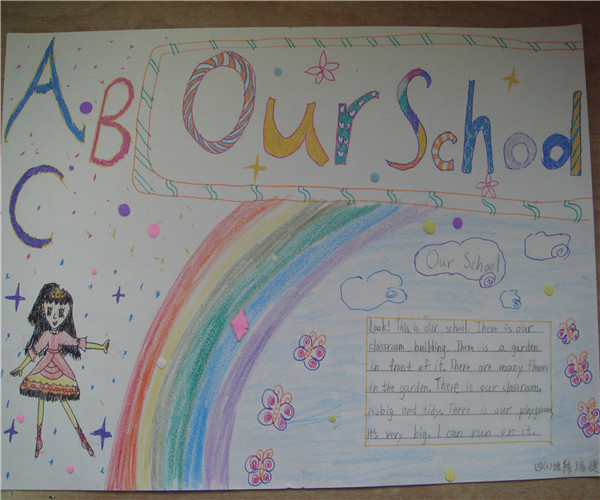 A
B
C
Our School
Our School
Look! This is our school. There is our
classroom building. There is a garden
in front of it. There are many flowers
in the garden. There is our classroom,
is big and tidy. There is our playground,
it's very big. I can run on it.
四(1)班